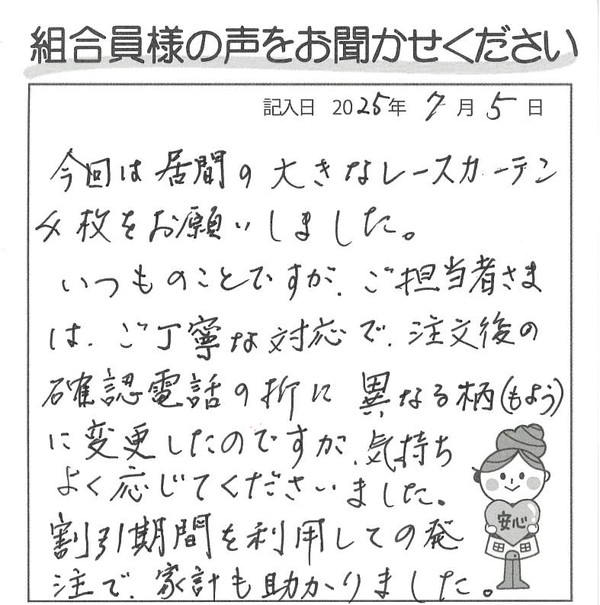 組合員様の声をお聞かせください
記入日 2025年 7月 5日
今回は居間の大きなレースカーテン
4枚をお願いしました。
いつものことですが、ご担当者さま
は、ご丁寧な対応で、注文後の
確認電話の折に 異なる柄(もよう)
に変更したのですが、気持ち
よく応じてくださいました。
割引期間を利用しての発
注で、家計も助かりました。
安心